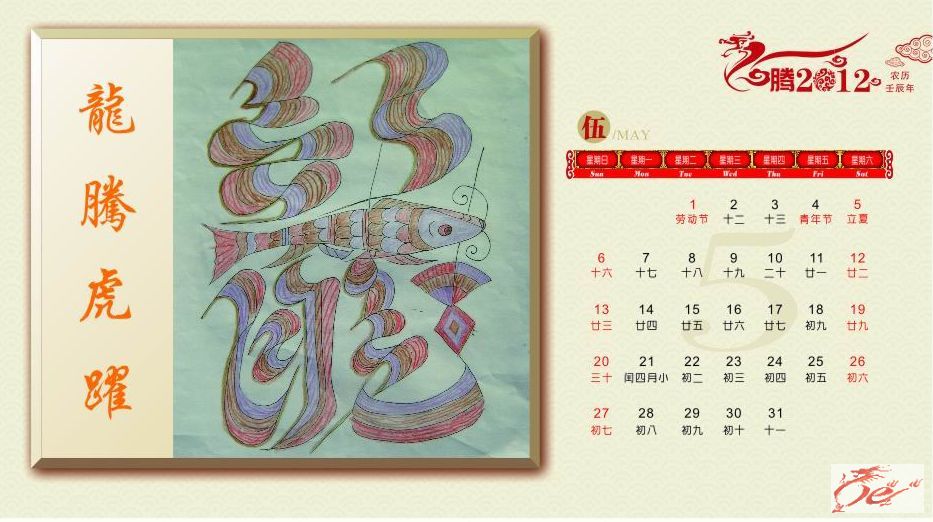 龍
騰
虎
躍
腾2012
农历
壬辰年
伍/MAY
星期日 星期一 星期二 星期三 星期四 星期五 星期六
Sun Mon Tue Wed Thu Fri Sat
5
1 2 3 4 5
劳动节 十二 十三 青年节 立夏
6 7 8 9 10 11 12
十六 十七 十八 十九 二十 廿一 廿二
13 14 15 16 17 18 19
廿三 廿四 廿五 廿六 廿七 初九 廿九
20 21 22 23 24 25 26
三十 闰四月小 初二 初三 初四 初五 初六
27 28 29 30 31
初七 初八 初九 初十 十一